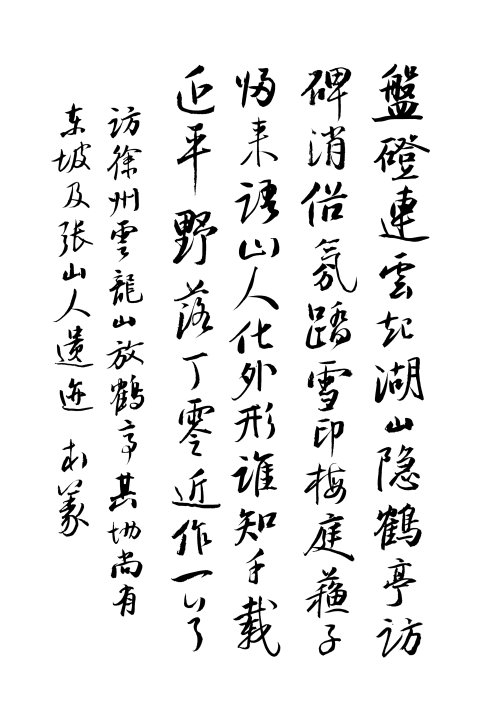 盤磴連雲起湖山隐鶴亭訪
碑消俗氛雪印梅庭蘓子
归来語山人化外形誰知千載
平野落丁零近作一首
訪徐州雲龍山放鶴亭其地尚有
东坡及張山人遺迹